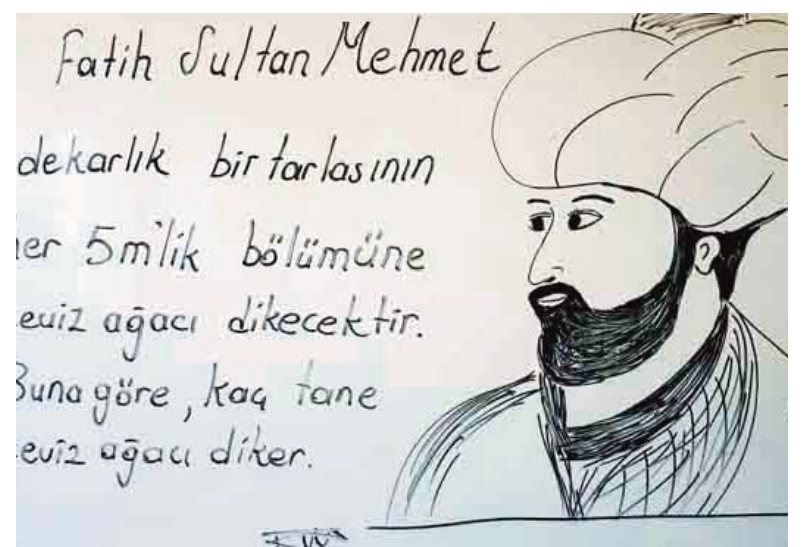 Fatih Sultan Mehmet
dekarlık bir tarlasının
er 5m'lik bölümüne
eviz ağacı dikecektir.
Buna göre, kaç tane
eviz ağacı diker.